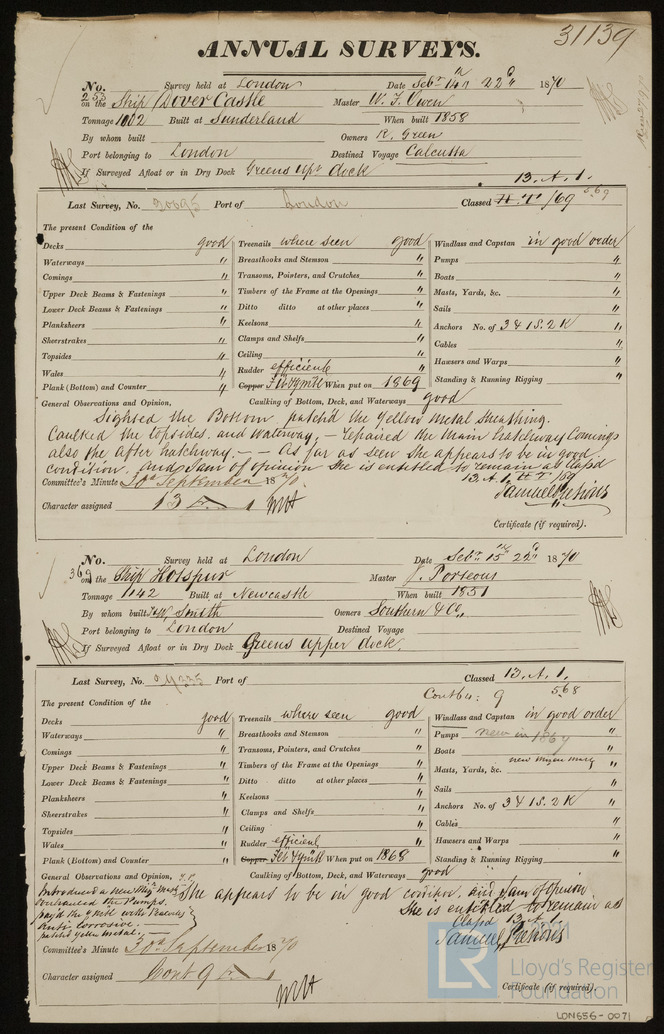 31139
ANNUAL SURVEYS.
No. 253 Survey held at London Date Sebr 14th 22d 1870
on the Ship Dover Castle Master W. T. Owen
Tonnage 1002 Built at Sunderland When built 1858
By whom built Owners R. Green
Port belonging to London Destined Voyage Calcutta
If Surveyed Afloat or in Dry Dock Greens upr dock
13. A. 1.
Last Survey, No. 30695 Port of London Classed H.T/69 569
The present Condition of the
Decks good Treenails where seen good Windlass and Capstan in good order
Waterways " Breasthooks and Stemson " Pumps "
Comings " Transoms, Pointers, and Crutches " Boats "
Upper Deck Beams & Fastenings " Timbers of the Frame at the Openings " Masts, Yards, &c. "
Lower Deck Beams & Fastenings " Ditto ditto at other places " Sails "
Planksheers " Keelsons " Anchors No. of 3 & 1S. 2K "
Sheerstrakes " Clamps and Shelfs " Cables "
Topsides " Ceiling " Hawsers and Warps "
Wales " Rudder efficient " Standing & Running Rigging "
Plank (Bottom) and Counter " Copper When put on 1869
General Observations and Opinion, Caulking of Bottom, Deck, and Waterways good
Sighted the Bottom patch'd the yellow metal sheathing.
Caulked the topsides and waterway, - repaired the main hatchway Comings
also the after hatchway. - - As far as seen she appears to be in good
condition. and I am of opinion she is entitled to remain as Clas'd
13. A. 1. H T /69
Committee's Minute 30th September 1870.
Character assigned 13 A 1
Certificate (if required).
No. 369 Survey held at London Date Sebr 15th 22d 1870
on the Ship Hotspur Master J. Porteous
Tonnage 1142 Built at Newcastle When built 1851
By whom built T&W Smith Owners Southern & Co,,
Port belonging to London Destined Voyage
If Surveyed Afloat or in Dry Dock Greens upper dock.
Last Survey, No. Port of Classed 13. A. 1.
Contd 9 568
The present Condition of the
Decks good Treenails where seen good Windlass and Capstan in good order
Waterways " Breasthooks and Stemson " Pumps new in 1869
Comings " Transoms, Pointers, and Crutches " Boats "
Upper Deck Beams & Fastenings " Timbers of the Frame at the Openings " Masts, Yards, &c. new mizen mast "
Lower Deck Beams & Fastenings " Ditto ditto at other places " Sails "
Planksheers " Keelsons " Anchors No. of 3 & 1S. 2K "
Sheerstrakes " Clamps and Shelfs " Cables "
Topsides " Ceiling " Hawsers and Warps "
Wales " Rudder efficient " Standing & Running Rigging "
Plank (Bottom) and Counter " Copper When put on 1868
General Observations and Opinion, Caulking of Bottom, Deck, and Waterways good
Introduced a new Mizn Mast
overhauled the Pumps.
pay'd the yellow metal with Peacock's
Anti Corrosive.
patch'd yellow metal. -
She appears to be in good condition. and I am of opinion
She is entitled to remain as
Clas'd 13. A. 1.
Committee's Minute 30th September 1870
Character assigned Contd 9
Certificate (if required).
LR
Lloyd's Register
Foundation
LDN656-0071